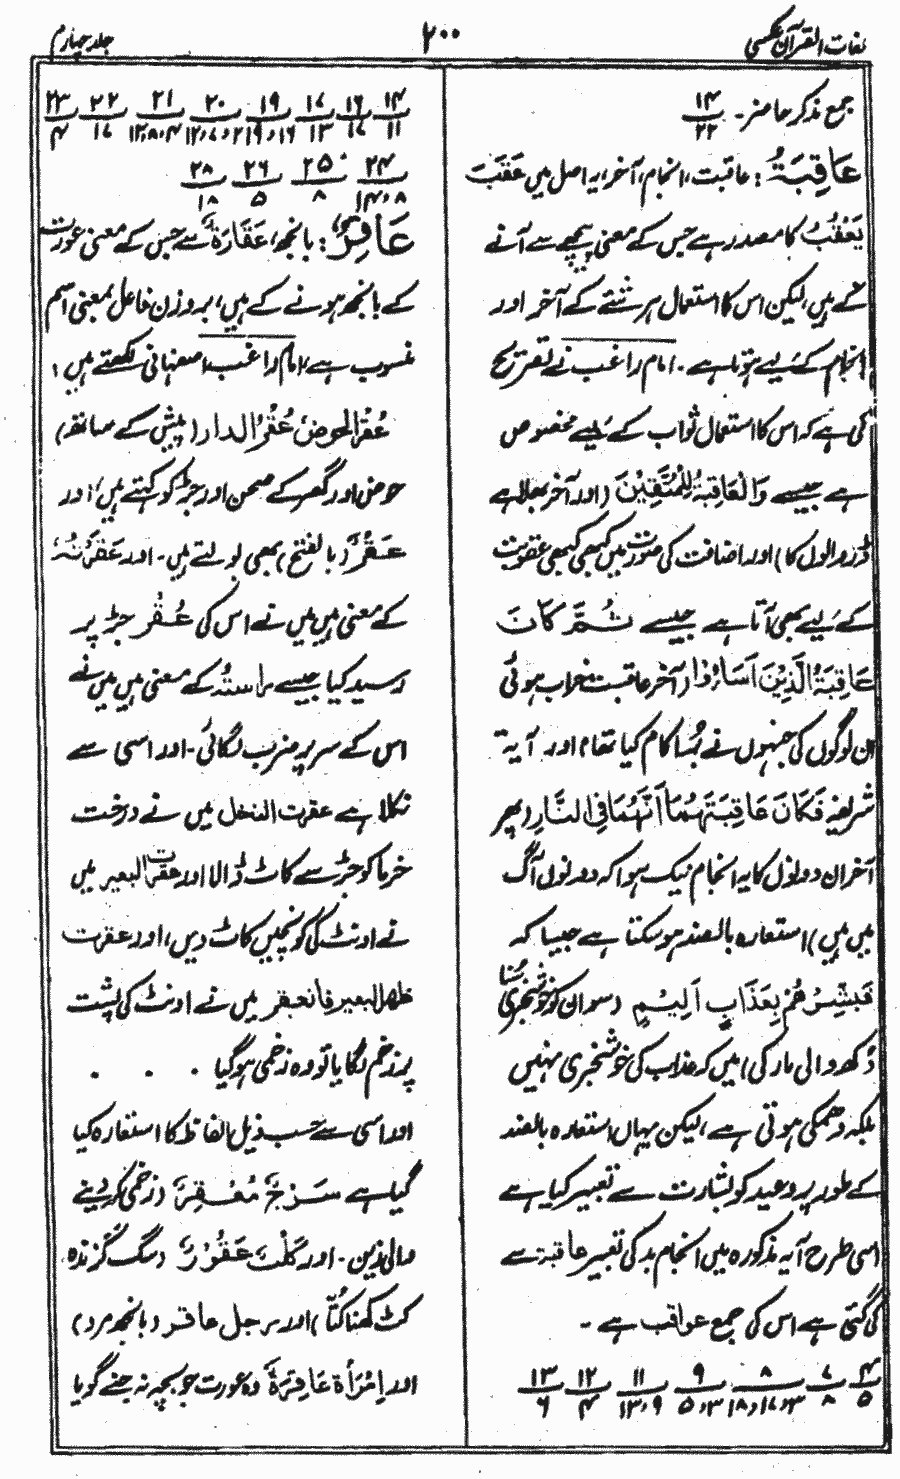 لغات القرآن عکسی
۲۰۰
جلد چہارم
جمع مذکر حاضر۔ ۱۴/۲۲
عَاقِبَةُ : عاقبت، انجام، آخر، یہ اصل میں عَقَبَ
یَعْقُبُ کا مصدر ہے جس کے معنی پیچھے سے آنے
کے ہیں، لیکن اس کا استعمال ہر شئے کے آخر اور
انجام کے لیے ہوتا ہے۔ امام راغب نے تصریح
کی ہے کہ اس کا استعمال ثواب کے لیے مخصوص
ہے جیسے وَالْعَاقِبَةُ لِلْمُتَّقِیْنَ (اور آخر بھلا ہے
ڈر والوں کا) اور اضافت کی صورت میں کبھی کبھی عقوبت
کے لیے بھی آتا ہے جیسے ثُمَّ کَانَ
عَاقِبَةُ الَّذِیْنَ اَسَاءُوْا (آخر عاقبت خراب ہوئی
ان لوگوں کی جنہوں نے بُرا کام کیا تھا) اور آیۃ
شریفہ فَکَانَ عَاقِبَتَہُمَا اَنَّہُمَا فِی النَّارِ (پھر
آخر ان دونوں کا یہ انجام نیک ہوا کہ دونوں آگ
میں ہیں) استعارہ بالضد ہو سکتا ہے جیسا کہ
فَبَشِّرْهُمْ بِعَذَابٍ اَلِیْمٍ (سو ان کو خوشخبری سنا
دُکھ والی مار کی) میں کہ عذاب کی خوشخبری نہیں
بلکہ دھمکی ہوتی ہے، لیکن یہاں استعارہ بالضد
کے طور پر وعید کو بشارت سے تعبیر کیا ہے
اسی طرح آیہ مذکورہ میں انجام بد کی تعبیر عاقبۃ سے
کی گئی ہے اس کی جمع عواقب ہے ۔
۴/۵ ۷/۸ ۸/۱۸،۱۷،۳ ۹/۵،۳ ۱۱/۱۳،۹ ۱۲/۴ ۱۳/۶
۱۴/۱۱ ۱۶/۱۷ ۱۷/۱۳ ۱۹/۱۹،۱۶ ۲۰/۱۲،۷،۲ ۲۱/۱۲،۸،۴ ۲۲/۱۷ ۲۳/۴
۲۴/۱۴،۸ ۲۵/۸ ۲۶/۵ ۲۸/۱۸
عَاقِرٌ : بانجھ، عَقَارَةٌ سے جس کے معنی عورت
کے بانجھ ہونے کے ہیں، بروزن فاعل بمعنی اسم
منسوب ہے، امام راغب اصفہانی لکھتے ہیں :
عُقْرُ الحوض عُقْرُ الدار (پیش کے ساتھ)
حوض اور گھر کے صحن اور جڑ کو کہتے ہیں، اور
عَقْرٌ (بالفتح) بھی بولتے ہیں۔ اور عَقَرْتُہٗ
کے معنی ہیں میں نے اس کی عُقْر جڑ پر
رسید کیا جیسے راستہُ کے معنی ہیں میں نے
اس کے سر پر ضرب لگائی۔ اور اسی سے
نکلا ہے عقرت النخل میں نے درخت
خرما کو جڑ سے کاٹ ڈالا اور عقرت البعیر میں
نے اونٹ کی کونچیں کاٹ دیں، اور عقرت
ظھر البعیر فانعقر میں نے اونٹ کی پشت
پر زخم لگایا تو وہ زخمی ہوگیا . . .
اور اسی سے حسب ذیل الفاظ کا استعارہ کیا
گیا ہے سَرْجٌ مُعْقِرٌ (زخمی کر دینے
والی زین۔ اور کَلْبٌ عَقُوْرٌ (سگ گزندہ
کٹ کھنا کُتّا) اور رجل عاقر (بانجھ مرد)
اور اِمْرَأَۃٌ عَاقِرَةٌ وہ عورت جو بچہ نہ جنے گویا